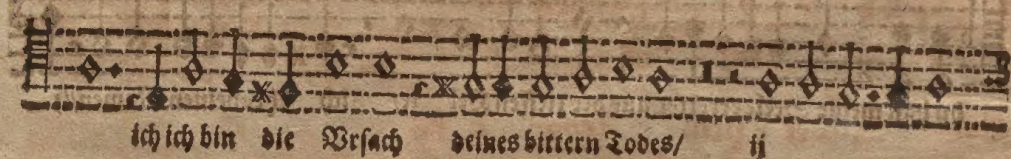 ich ich bin die Vrsach deines bittern Todes/ ij